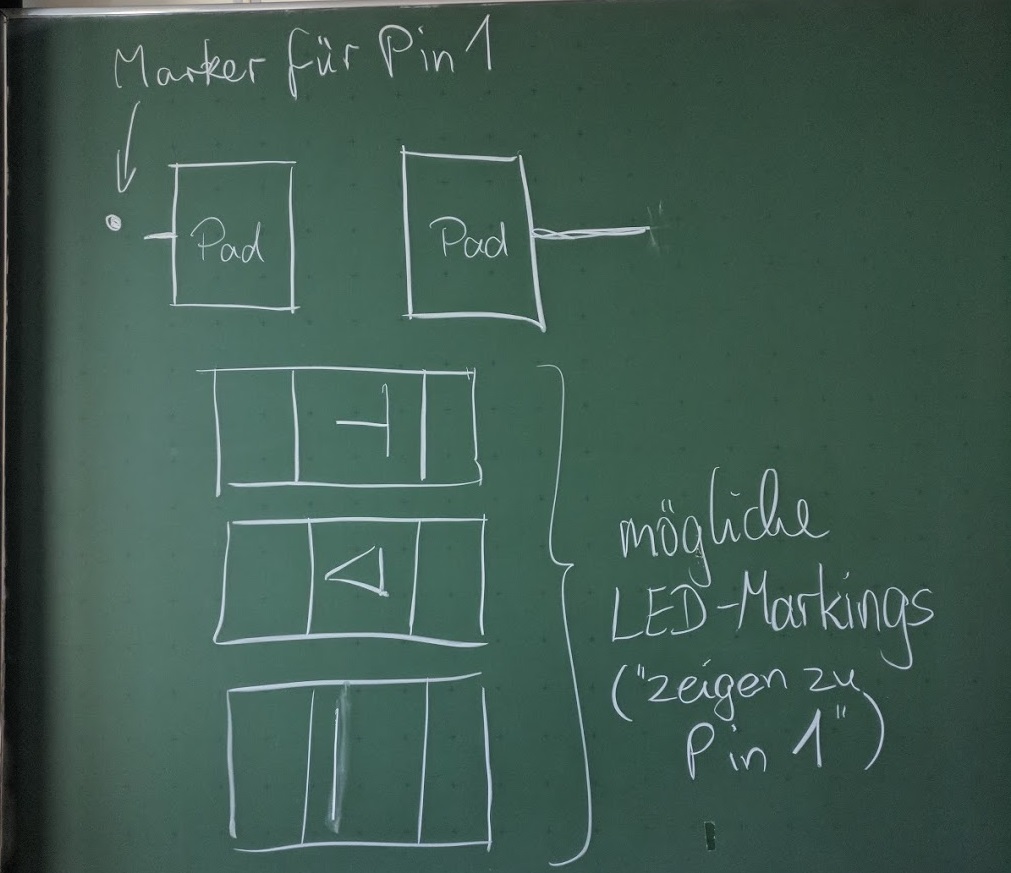 Marker für Pin 1
Pad
Pad
mögliche
LED-Markings
("zeigen zu
Pin 1")